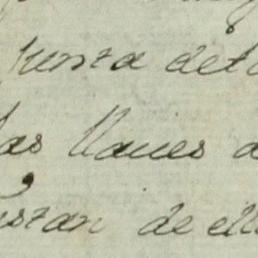 Junta del
las llaves d
istan de ell